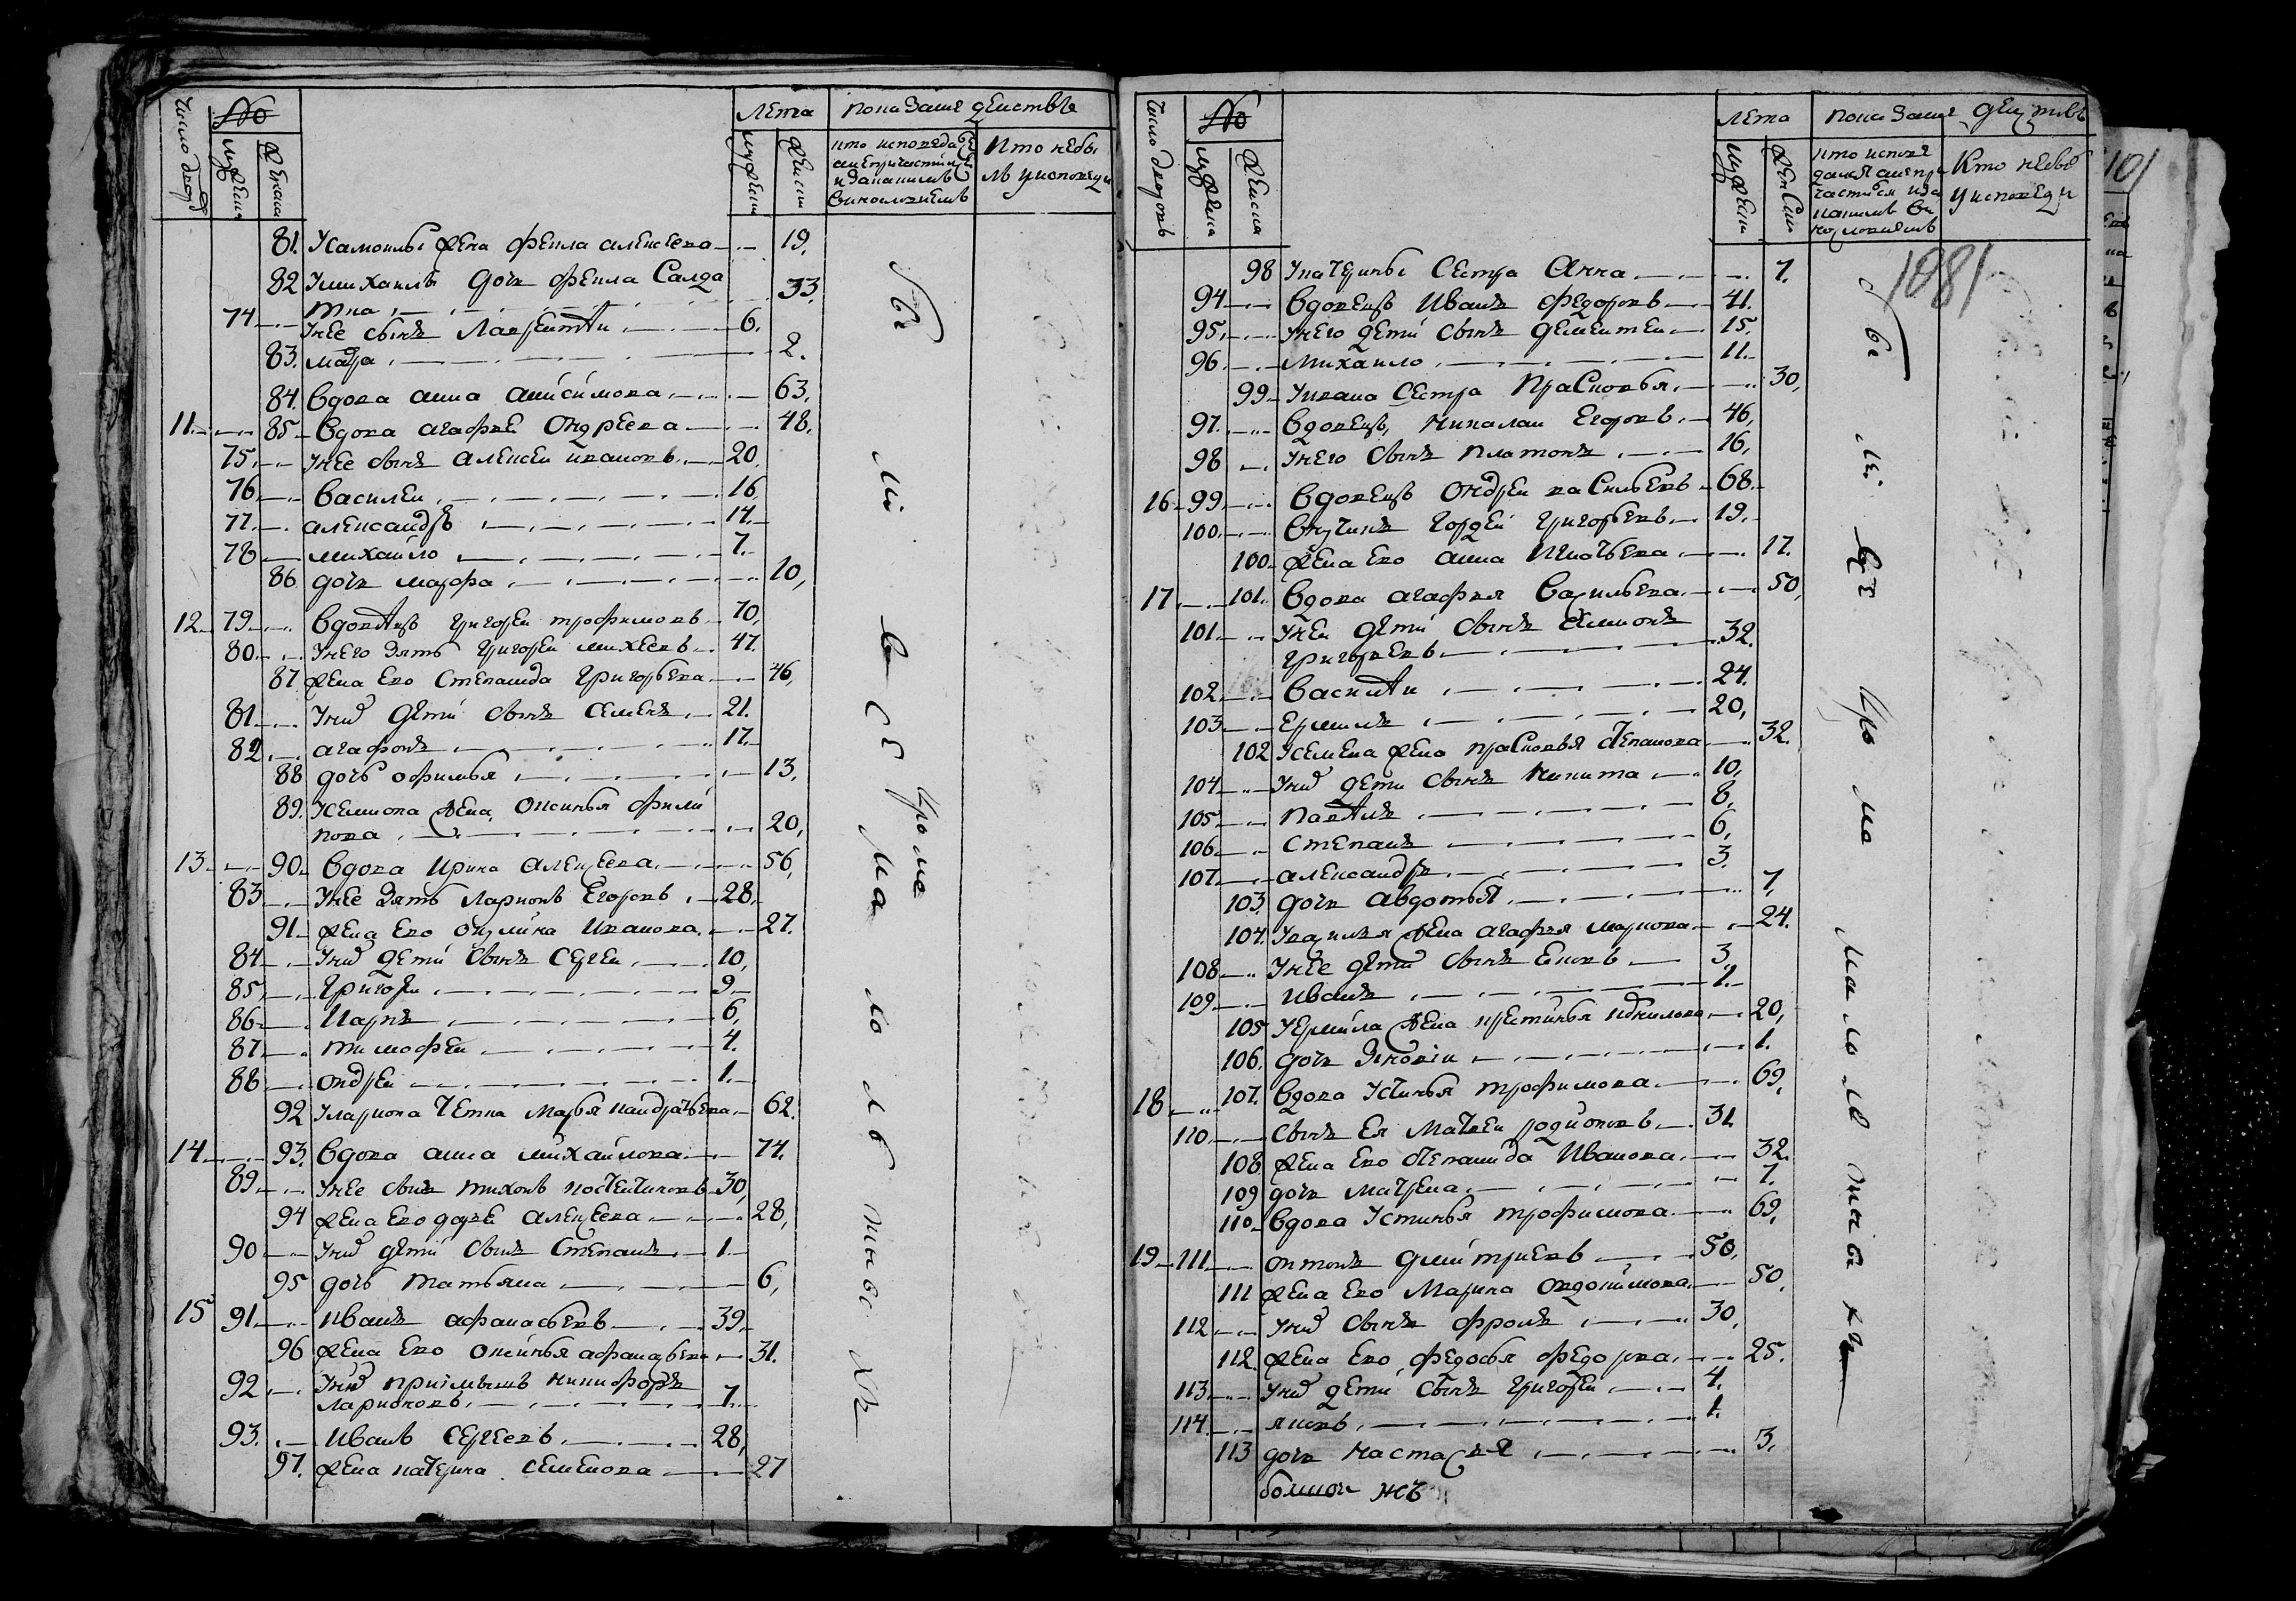 Число дворов № Лета показание действъ
мужеска женска мужески женски кто исповедался а непричастился и за каким винословиемъ Кто небылъ у исповеди
81. У Самоилы жена Фекла Алексеева 19.
82 У Михаилы дочь Фекла Салда
тка 33.
74 У нее сынъ Лаврентѣи 6.
83. 2.
84. Вдова Анна Анисимова 63.
11. 85 Вдова Агафья Ондреева 48.
75. У нее сынъ Алексеи Ивановъ 20.
76 Василеи 16
77. Александръ 14.
78 Михаило 7.
86 дочь Марфа 10,
12 79 Вдовѣцъ Григореи Трофимовъ 70,
80. У него зять Григореи Михеевъ 47.
87 жена ево Степанида Григорьева 46,
81 У них дети сынъ Семенъ 21.
82 Агафонъ 17.
88 дочь Офимья 13.
89. У Семиона жена Оксинья Фили
пова 20,
13 90 Вдова Ирина Алексеева 56,
83 У нее зять Ларионъ Егоровъ 28,
91 жена ево Окулина Иванова 27.
84 У них дети сынъ Сергеи 10,
85 Григореи 9
86 Карпъ 6,
87 Тимофеи 4.
88 Ондреи 1.
92 У Лариона тетка Марья Кандратьева 62.
14 93. Вдова Анна Михаилова 74.
89 У нее сынъ Тихонъ 30,
94 жена ево Дарья Алексеева 28,
90 У них дети сынъ Степанъ 1.
95 дочь Татьяна 6,
15 91 Иванъ Афанасьевъ 39.
96 жена ево Оксинья Афанасьева 31.
92 У них приемышъ Никифоръ
Ларионовъ 7.
93. Иванъ Сергеевъ 28,
97. жена Катерина Семенова 27
были все кроме малолѣтныхъ
Число дворовъ № Лета показание действъ
мужеска женска мужески женски кто исповедался а непричастился и за каким винословиемъ Кто небылъ у исповеди
101
1081
98 У Катерины сестра Анна 7.
94 Вдовецъ Иванъ Федоровъ 41.
95. У него дети сынъ Дементеи 15,
96 Михаило 11.
99 У Ивана сестра Прасковья 30,
97. Вдовецъ Николаи Егоровъ 46,
98 У него сынъ Платонъ 16,
16 99 Вдовецъ Ондреи Васильевъ 68.
100 Внучикъ Гордеи Григорьевъ 19.
100. жена ево Анна Игнатьева 17.
17 101. Вдова Агафья Васильева 50,
101 У неи дети сынъ Семионъ
Григорьевъ 32.
102 Василѣи 24.
103 Ермилъ 20,
102 У Семена жена Прасковья Степанова 32.
104 У них дети сынъ Никита 10,
105 Павѣлъ 8,
106 Степанъ 6,
107 Александръ 3.
103. дочь Авдотья 7,
104. У Василья жена Агафья Маркова 24.
108 У нее дети сынъ 3
109 Иванъ 1.
105 У Ермила жена Крестинья 20,
106. дочь 1.
18 107. Вдова Устинья Трофимова 69,
110 Сынъ ея Матвеи Родионовъ 31.
108 жена ево Степанида Иванова 32.
109 дочь Матрена 7.
110 Вдова Устинья Трофимова 69,
19 111 Онтонъ Дмитриевъ 50,
111 жена ево Марина 50,
112 У них сынъ Фролъ 30,
112. жена ево Федосья Федорова 25.
113 У них дети сынъ Григореи 4.
114. Яковъ 1.
113 дочь Настасья 3.
были все кроме малолетныхъ